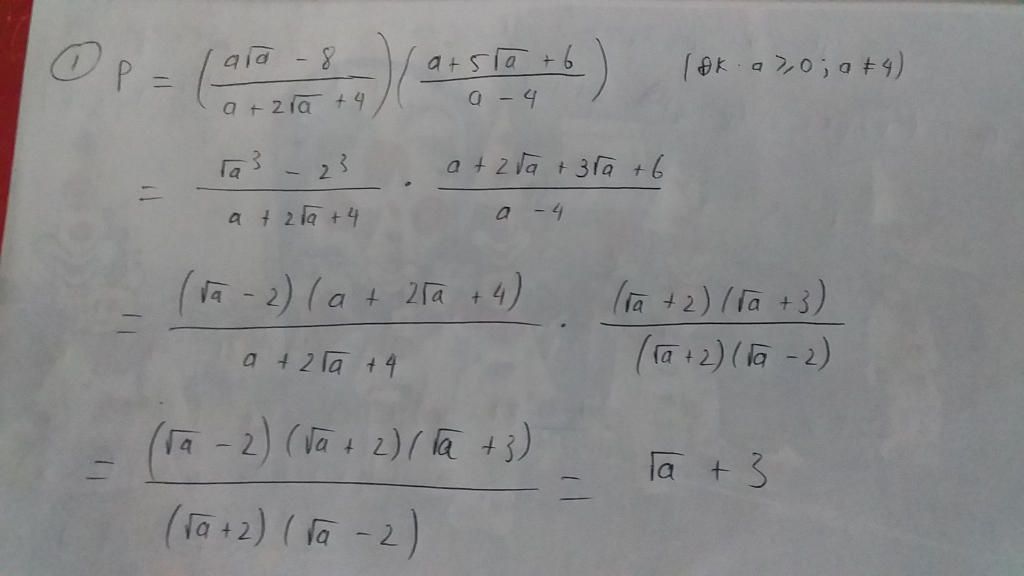 ① P = (a√a - 8 / a + 2√a + 4)(a + 5√a + 6 / a - 4) (ĐK: a ≥ 0; a ≠ 4)
= √a³ - 2³ / a + 2√a + 4 · a + 2√a + 3√a + 6 / a - 4
= (√a - 2)(a + 2√a + 4) / a + 2√a + 4 · (√a + 2)(√a + 3) / (√a + 2)(√a - 2)
= (√a - 2)(√a + 2)(√a + 3) / (√a + 2)(√a - 2) = √a + 3